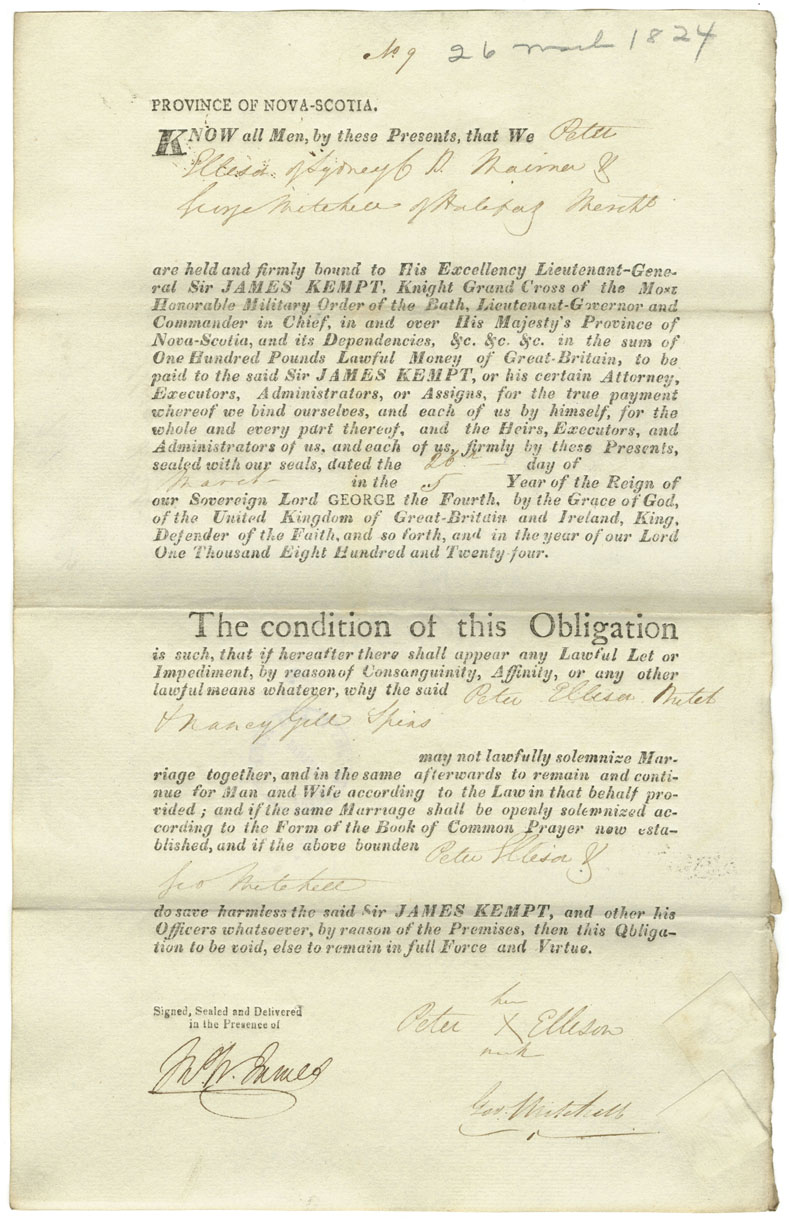 No 9 26 March 1824
PROVINCE OF NOVA-SCOTIA.
KNOW all Men, by these Presents, that We Peter
Ellison of Sydney C B. &
George Mitchell of Halifax Mercht.
are held and firmly bound to His Excellency Lieutenant-Gene-
ral Sir JAMES KEMPT, Knight Grand Cross of the Most
Honorable Military Order of the Bath, Lieutenant-Governor and
Commander in Chief, in and over His Majesty's Province of
Nova-Scotia, and its Dependencies, &c. &c. &c. in the sum of
One Hundred Pounds Lawful Money of Great-Britain, to be
paid to the said Sir JAMES KEMPT, or his certain Attorney,
Executors, Administrators, or Assigns, for the true payment
whereof we bind ourselves, and each of us by himself, for the
whole and every part thereof, and the Heirs, Executors, and
Administrators of us, and each of us, firmly by these Presents,
sealed with our seals, dated the 26th day of
March in the 5 Year of the Reign of
our Sovereign Lord GEORGE the Fourth, by the Grace of God,
of the United Kingdom of Great-Britain and Ireland, King,
Defender of the Faith, and so forth, and in the year of our Lord
One Thousand Eight Hundred and Twenty-four.
The condition of this Obligation
is such, that if hereafter there shall appear any Lawful Let or
Impediment, by reason of Consanguinity, Affinity, or any other
lawful means whatever, why the said Peter Ellison
& Nancy Gill Spins
may not lawfully solemnize Mar-
riage together, and in the same afterwards to remain and conti-
nue for Man and Wife according to the Law in that behalf pro-
vided ; and if the same Marriage shall be openly solemnized ac-
cording to the Form of the Book of Common Prayer now esta-
blished, and if the above bounden Peter Ellison &
Geo Mitchell
do save harmless the said Sir JAMES KEMPT, and other his
Officers whatsoever, by reason of the Premises, then this Obliga-
tion to be void, else to remain in full Force and Virtue.
Signed, Sealed and Delivered
in the Presence of
his
Peter X Ellison
mark
James
Geo. Mitchell